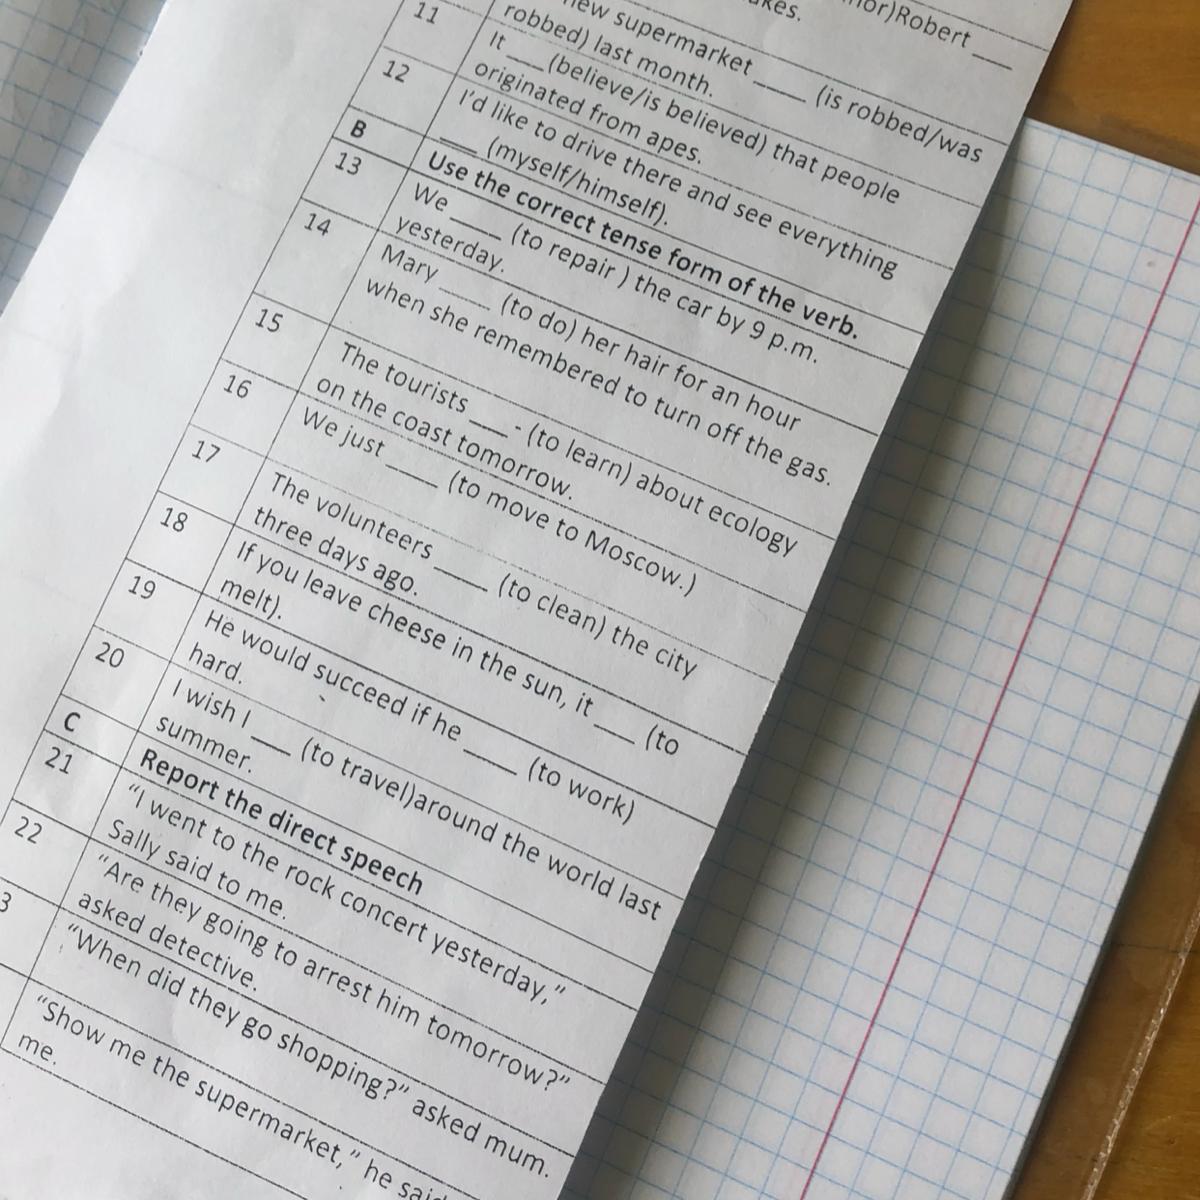 akes.
nor)Robert ___
11
new supermarket ____ (is robbed/was
robbed) last month.
12
It ___ (believe/is believed) that people
originated from apes.
I'd like to drive there and see everything
___ (myself/himself).
B
Use the correct tense form of the verb.
13
We ____ (to repair ) the car by 9 p.m.
yesterday.
14
Mary ____ (to do) her hair for an hour
when she remembered to turn off the gas.
15
The tourists ___ - (to learn) about ecology
on the coast tomorrow.
16
We just ____ (to move to Moscow.)
17
The volunteers ____ (to clean) the city
three days ago.
18
If you leave cheese in the sun, it ___ (to
melt).
19
He would succeed if he ____ (to work)
hard.
20
I wish I ___ (to travel)around the world last
summer.
C
Report the direct speech
21
"I went to the rock concert yesterday,"
Sally said to me.
22
"Are they going to arrest him tomorrow?"
asked detective.
3
"When did they go shopping?" asked mum.
"Show me the supermarket," he said
me.